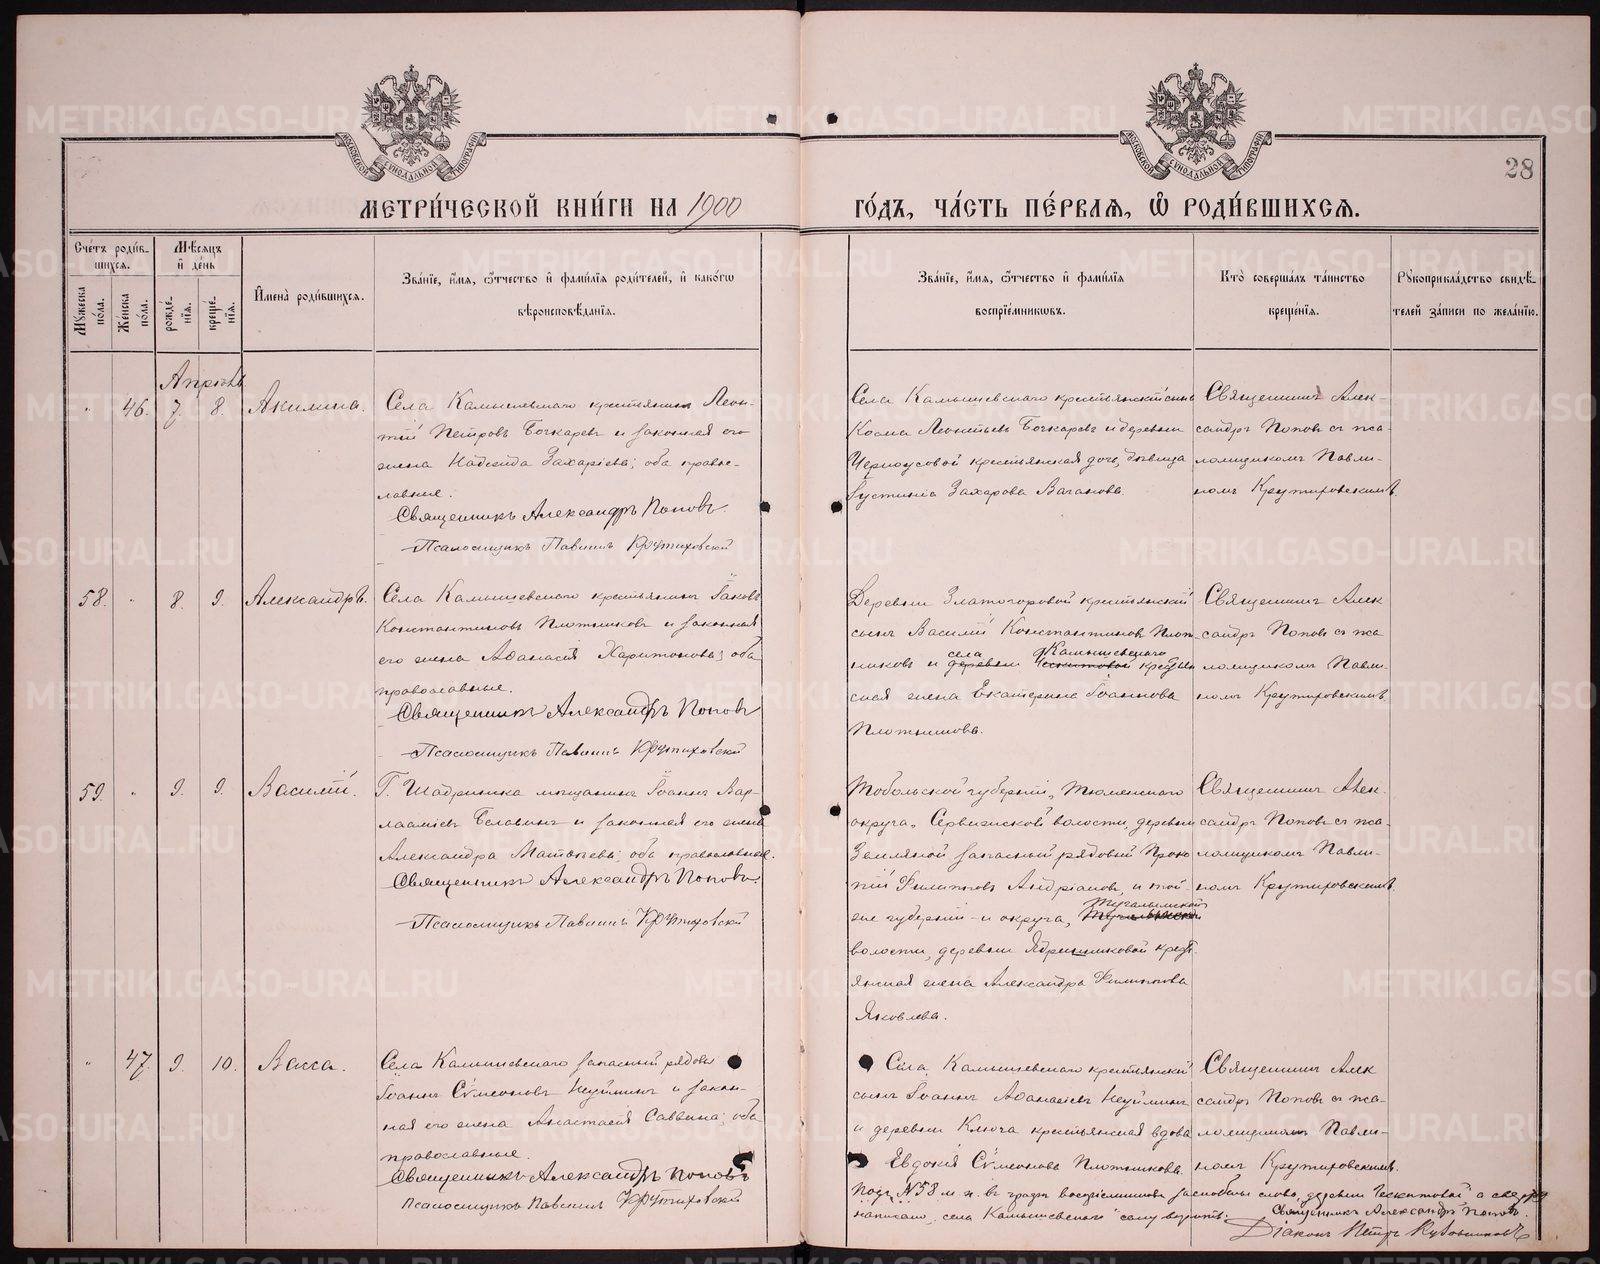 28
МЕТРИ́ЧЕСКОЙ КНИ́ГИ НА 1900 ГО́ДЪ, ЧА́СТЬ ПЕ́РВАЯ, Ѽ РОДИ́ВШИХСЯ.
Сче́тъ роди́в-
шихся.
Мꙋжеска по́ла.
Же́нска по́ла.
Мѣ́сяцъ
и҆ де́нь
рожде́-
нїя.
креще́-
нїя.
И҆мена̀ роди́вшихся.
Зва́нїе, и҆́мя, ѻ҆́тчество и҆ фами́лїя роди́телей, и҆ како́гѡ
вѣроисповѣ́данїя.
Зва́нїе, и҆́мя, ѻ҆́тчество и҆ фами́лїя
воспрїе́мникѡвъ.
Кто̀ соверша́лъ та́инство
креще́нїя.
Рꙋкоприкла́дство свидѣ́-
телей за́писи по жела́нїю.
Апрѣль
" 46. 7. 8. Акилина.
Села Камышевскаго крестьянинъ Леон-
тій Петровъ Бочкаревъ и законная его
жена Надежда Захаріева; оба право-
славные.
Священникъ Александръ Поповъ.
Псаломщикъ Павлинъ Крутиховскій
Села Камышевскаго крестьянскій сынъ
Косма Леонтьевъ Бочкаревъ и деревни
Черноусовой крестьянская дочь, дѣвица
Іустинія Захарова Ваганова.
Священникъ Алек-
сандръ Поповъ съ пса-
ломщикомъ Павли-
номъ Крутиховскимъ.
58. " 8. 9. Александръ.
Села Камышевскаго крестьянинъ Іаковъ
Константиновъ Плотниковъ и законная
его жена Аѳанасія Харитонова; оба
православные.
Священникъ Александръ Поповъ
Псаломщикъ Павлинъ Крутиховскій
Деревни Златогоровой крестьянскій
сынъ Василій Константиновъ Плот-
села Камышевскаго
никовъ и деревни крестьян
ская жена Екатерина Іоаннова
Плотникова.
Священникъ Алек
сандръ Поповъ съ пса
ломщикомъ Павли-
номъ Крутиховскимъ
59. " 9. 9. Василій.
Г. Шадринска мѣщанинъ Іоаннъ Вар-
лаамiевъ Бѣлавинъ и законная его жена
Александра Матѳеева; оба православные.
Священникъ Александръ Поповъ.
Псаломщикъ Павлинъ Крутиховскій
Тобольской губерніи, Тюменскаго
округа, волости, деревни
Земляной запасный рядовый Проко
пій Филипповъ Андріановъ, и той-
Тугулымской
же губерніи и округа,
волости, деревни крест
янская жена Александра Филиппова
Яковлева.
Священникъ Алек
сандръ Поповъ съ пса-
ломщикомъ Павли-
номъ Крутиховскимъ.
" 47. 9. 10. Васса.
Села Камышевскаго запасный рядовы
Іоаннъ Сѵмеоновъ Неуйминъ и закон-
ная его жена Анастасія Саввина; оба
православные.
Священникъ Александръ Поповъ
Псаломщикъ Павлинъ Крутиховскій
Села Камышевскаго крестьянскій
сынъ Іоаннъ Аѳанасіевъ Неуйминъ
и деревни Ключа крестьянская вдова
Евдокія Сѵмеонова Плотникова.
Священникъ Алек
сандръ Поповъ съ пса-
ломщикомъ Павли-
номъ Крутиховскимъ.
Подъ №58 м. п. въ графѣ воспріемниковъ слово, деревни а сверху
написано „села Камышевскаго" сему вѣрить.
Священникъ Александръ Поповъ.
Діаконъ Петръ